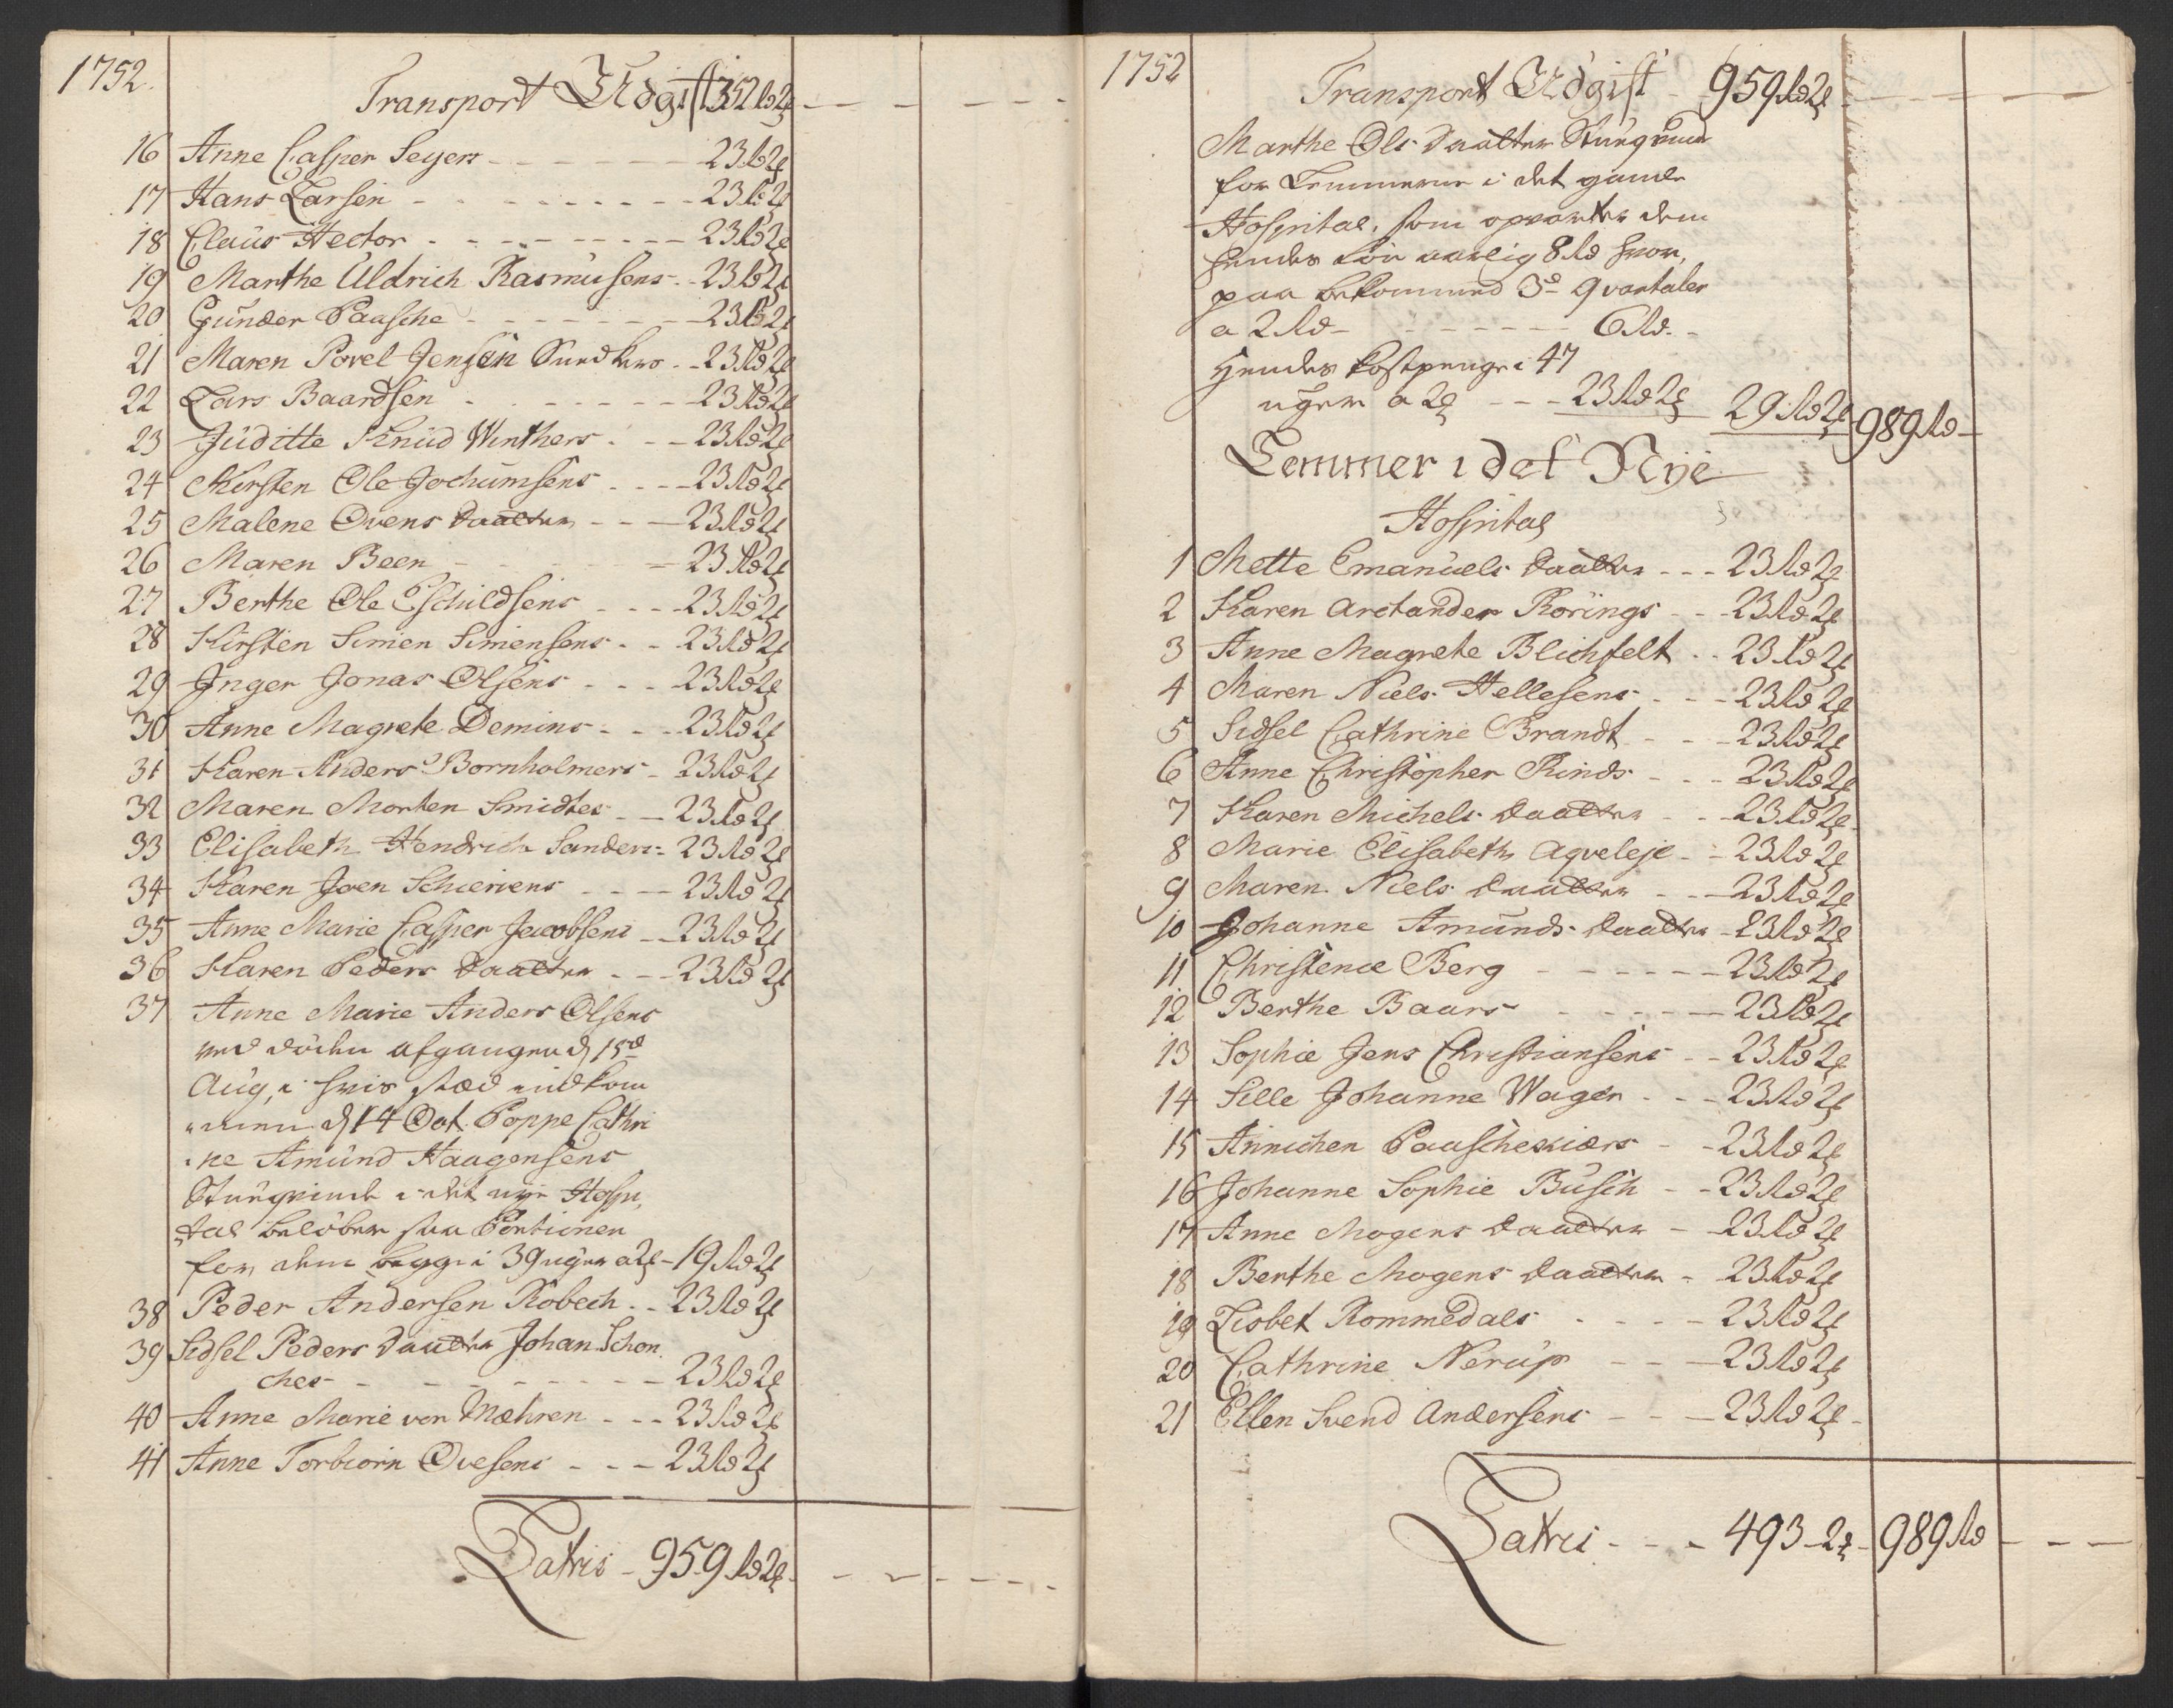 1752.
Transport Udgift 352 Rd 2 ℔
16 Anne Casper Seyers - - - 23 Rd 2 ℔
17 Hans Larsen - - - 23 Rd 2 ℔
18 Claus Hector - - - 23 Rd 2 ℔
19 Marthe Uldrich Rasmusens - - 23 Rd 2 ℔
20 Gunder Paasche - - - 23 Rd 2 ℔
21 Maren Povel Jensen Sundkers - - 23 Rd 2 ℔
22 Lars Baardsen - - - 23 Rd 2 ℔
23 Juditte Knud Winthers - - - 23 Rd 2 ℔
24 Kirsten Ole Jochumsens - - - 23 Rd 2 ℔
25 Malene Ovens daatter - - - 23 Rd 2 ℔
26 Maren Been - - - 23 Rd 2 ℔
27 Berthe Ole Eschildsens - - - 23 Rd 2 ℔
28 Kirsten Simen Simensens - - 23 Rd 2 ℔
29 Inger Jonas Olsens - - - 23 Rd 2 ℔
30 Anne Magrete Demins - - - 23 Rd 2 ℔
31 Karen Anders Bornholmers - 23 Rd 2 ℔
32 Maren Morten Smidtes - - 23 Rd 2 ℔
33 Elisabeth Hendrich Sanders - 23 Rd 2 ℔
34 Karen Joen Schierens - - - 23 Rd 2 ℔
35 Anne Marie Casper Jacobsens - - 23 Rd 2 ℔
36 Karen Peders daatter - - - 23 Rd 2 ℔
37 Anne Marie Anders Olsens
ved døden afgangen d 15d
Aug, i hvis stæd indkom
men d 14 Oct. Poppe Cathri
ne Amund Haagensens
Stueqvinde i det nye Hospi
tal beløber saa Portionen
for dem begge i 39 uger a 2 ℔ - 19 Rd 2 ℔
38 Peder Andersen Robech - - 23 Rd 2 ℔
39 Sidsel Peders daatter Johan Schon
ches - - - 23 Rd 2 ℔
40 Anne Marie von Mæhren - - - 23 Rd 2 ℔
41 Anne Torbiorn Ovesens - - - 23 Rd 2 ℔
Latris - 959 Rd 2 ℔
1752
Transport Udgift - 959 Rd 2 ℔
Marthe Ols daatter Stueqvinde
for Lemmerne i det gamle
Hospital, som opvarter dem
hendes løn aarlig 8 Rd hvor,
paa bekommed 3de Qvartaler
a 2 Rd - - - 6 Rd. -
Hendes Kostpenge i 47
uger a 2 ℔ - - - 23 Rd 2 ℔ 29 Rd 2 ℔ 989 Rd -
Lemmer i det Nye
Hospital
1 Mette Emanuels daatter - - - 23 Rd 2 ℔
2 Karen Arctander Rorings - - 23 Rd 2 ℔
3 Anne Magrete Blichfelt - - 23 Rd 2 ℔
4 Maren Niels Hellesens - - - 23 Rd 2 ℔
5 Sidsel Cathrine Brandt - - - 23 Rd 2 ℔
6 Anne Christopher Rinds - - - 23 Rd 2 ℔
7 Karen Michels daatter - - - 23 Rd 2 ℔
8 Marie Elisabeth Agveleje - - 23 Rd 2 ℔
9 Maren Niels daatter - - - 23 Rd 2 ℔
10 Johanne Amunds daatter - 23 Rd 2 ℔
11 Christence Berg - - - 23 Rd 2 ℔
12 Berthe Baars - - - 23 Rd 2 ℔
13 Sophie Jens Christiansens - - 23 Rd 2 ℔
14 Sille Johanne Wagen - - - 23 Rd 2 ℔
15 Annichen Paascheskiærs - - 23 Rd 2 ℔
16 Johanne Sophie Busch - - 23 Rd 2 ℔
17 Anne Mogens daatter - 23 Rd 2 ℔
18 Berthe Mogens daatter - 23 Rd 2 ℔
19 Lisbet Rommedals - - - 23 Rd 2 ℔
20 Cathrine Nerup - - - 23 Rd 2 ℔
21 Ellen Svend Andersens - - - 23 Rd 2 ℔
Latris - - - 493 - 2 ℔ - 989 Rd - - -